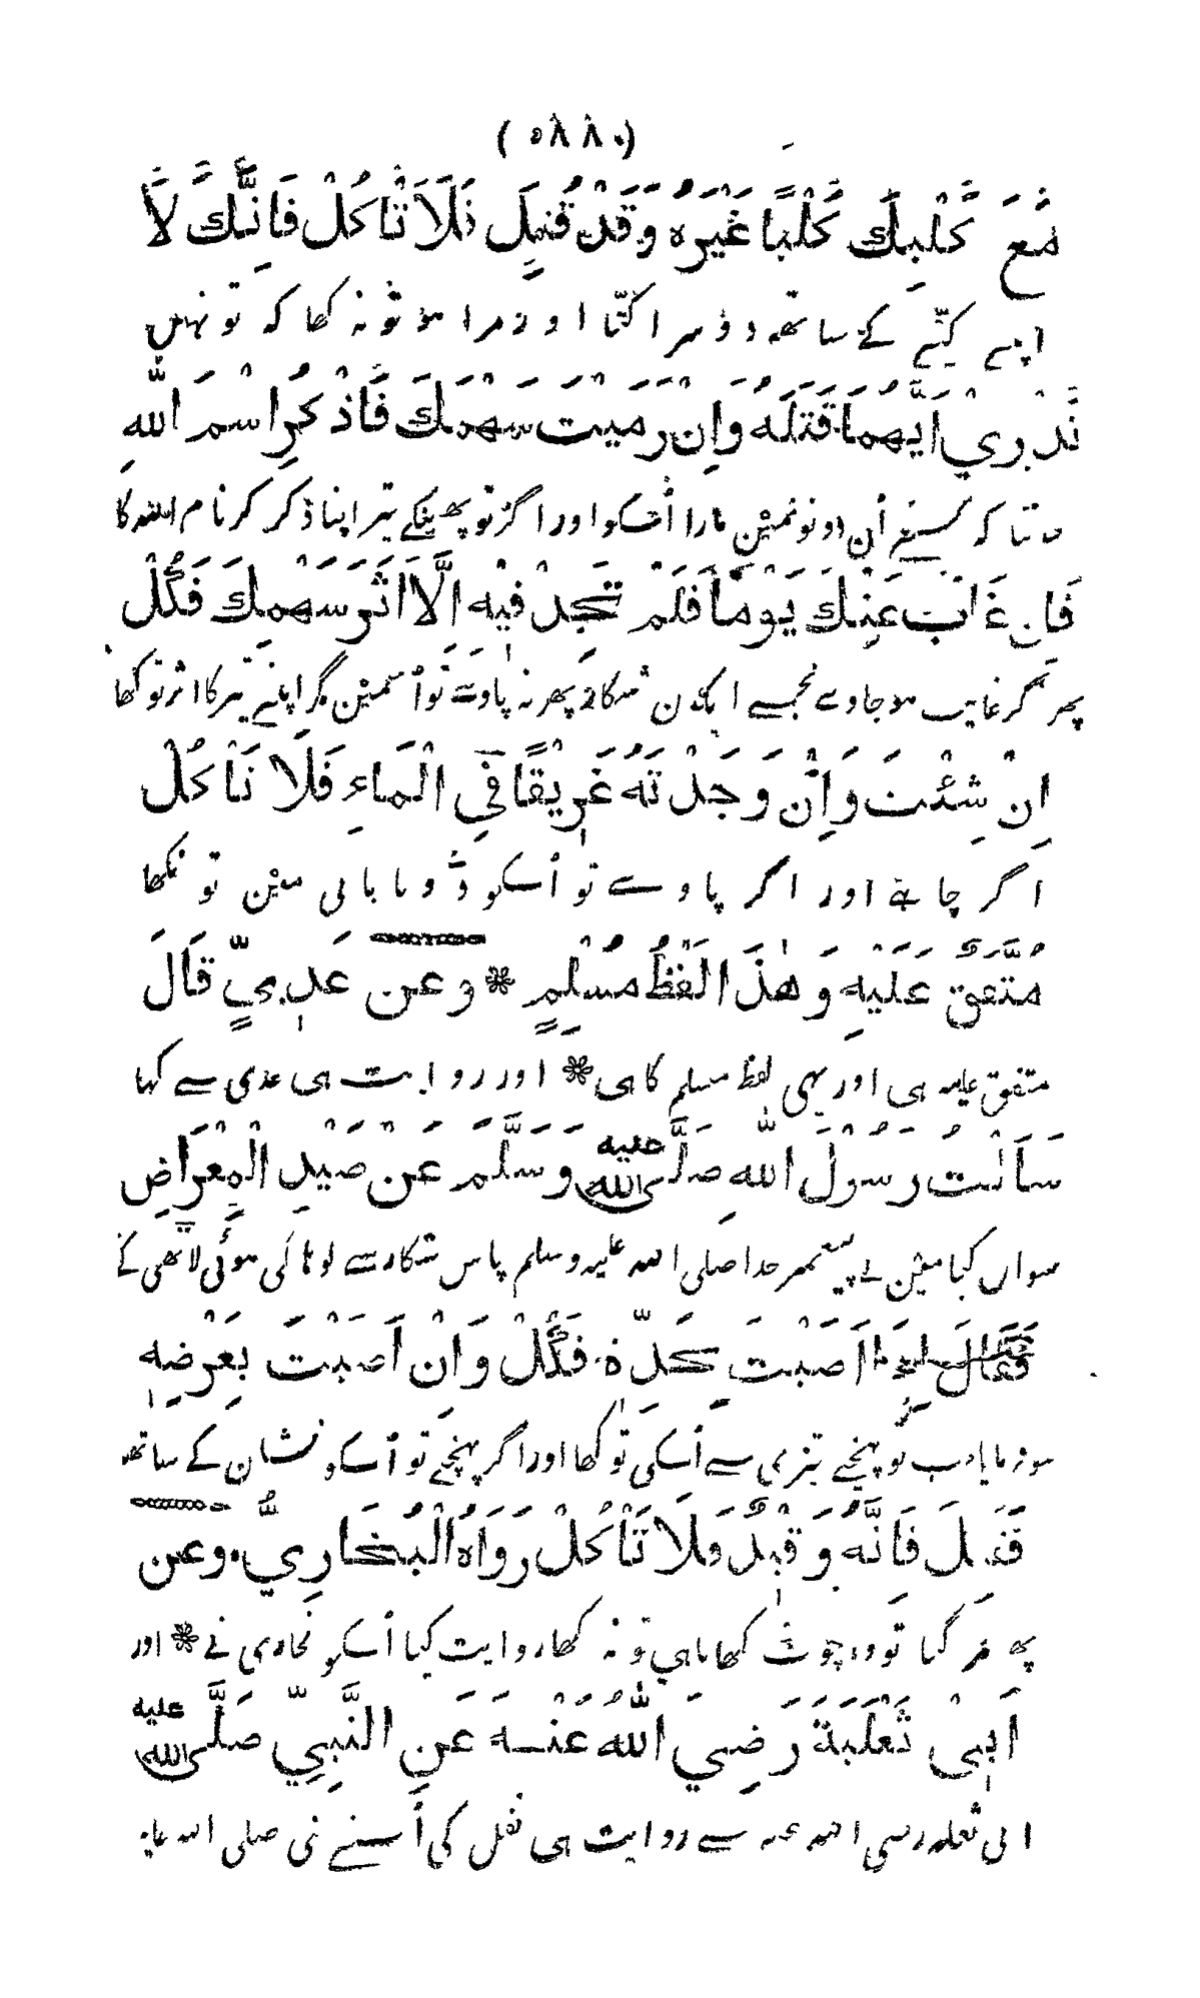 (٥٨٨)
مَعَ كَلْبِكَ كَلْبًا غَيْرَهُ وَقَدْ قُتِلَ فَلَا تَأْكُلْ فَإِنَّكَ لَا
اپنے کتّے کے ساتھہ دوسرا کتّا اور مرا ہو تو نہ کھا کہ تو نہیں
تَدْرِي اَيُّهُمَا قَتَلَهُ وَاِنْ رَمَيْتَ سَهْمَكَ فَاذْكُرِ اسْمَ اللهِ
جانتا کہ کسنے اُن دونونمین مارا اُسکو اور اگر تو پھینکے تیر اپنا ذکر کر نام الله کا
فَاِنْ غَابَ عَنْكَ يَوْمًا فَلَمْ تَجِدْ فِيْهِ اِلَّا اَثَرَ سَهْمِكَ فَكُلْ
پھر اگر غایب ہوجاوے تجھسے ایک دن شکار پھر نہ پاوے تو اُسمین مگر اپنے تیر کا اثر تو کھا
اِنْ شِئْتَ وَاِنْ وَجَدْتَهُ غَرِيْقًا فِي الْمَاءِ فَلَا تَأْكُلْ
اگر چاہے اور اگر پاوے تو اُسکو ڈوبا پانی مین تو نکھا
مُتَّفَقٌ عَلَيْهِ وَهٰذَا لَفْظُ مُسْلِمٍ * وَعَن عَدِيٍّ قَالَ
متفق علیه ہی اور یہی لفظ مسلم کا ہی * اور روایت ہی عدی سے کہا
سَاَلْتُ رَسُوْلَ اللهِ صَلَّى اللهُ عليه وَسَلَّمَ عَنْ صَيْدِ الْمِعْرَاضِ
سوال کیا مین نے پیغمبر خدا صلی الله علیه وسلم پاس شکار سے لوہا لگی ہوئی لاٹھی کے
فَقَالَ اِذَا اَصَبْتَ بِحَدِّهِ فَكُلْ وَاِنْ اَصَبْتَ بِعَرْضِهِ
سو فرمایا جب تو پہنچے تیزی سے اُسکی تو کھا اور اگر پہنچے تو اُسکو نشان کے ساتھہ
فَقُتِلَ فَاِنَّهُ وَقِيْذٌ فَلَا تَأْكُلْ رَوَاهُ الْبُخَارِيُّ وَعَن
پھر مر گیا تو وہ چوٹ کھایا ہی تو نہ کھا روایت کیا اُسکو بخاری نے * اور
اَبِيْ ثَعْلَبَةَ رَضِيَ اللهُ عَنْهُ عَنِ النَّبِيِّ صَلَّى اللهُ عليه
ابی ثعلبه رضی الله عنه سے روایت ہی نقل کی اُسنے نبی صلی الله علیه